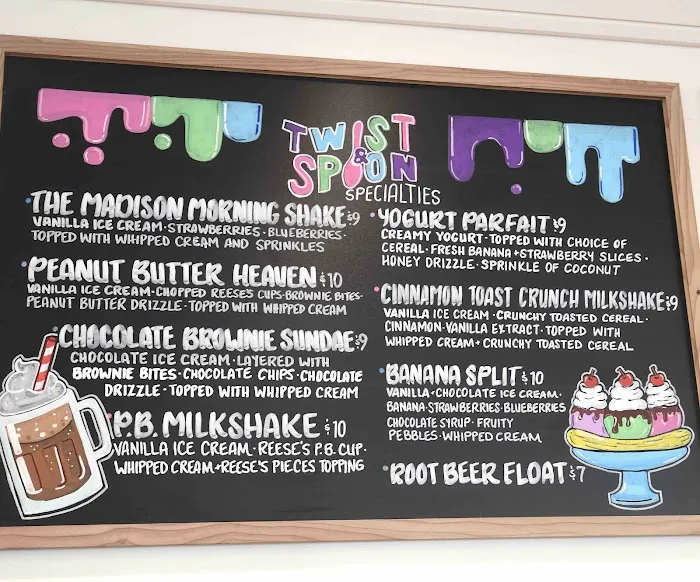 TWIST
& SPOON
SPECIALTIES
THE MADISON MORNING SHAKE $9
VANILLA ICE CREAM · STRAWBERRIES · BLUEBERRIES ·
TOPPED WITH WHIPPED CREAM AND SPRINKLES
PEANUT BUTTER HEAVEN $10
VANILLA ICE CREAM · CHOPPED REESE'S CUPS · BROWNIE BITES ·
PEANUT BUTTER DRIZZLE · TOPPED WITH WHIPPED CREAM
CHOCOLATE BROWNIE SUNDAE $9
CHOCOLATE ICE CREAM · LAYERED WITH
BROWNIE BITES · CHOCOLATE CHIPS · CHOCOLATE
DRIZZLE · TOPPED WITH WHIPPED CREAM
P.B. MILKSHAKE $10
VANILLA ICE CREAM · REESE'S P.B. CUP ·
WHIPPED CREAM + REESE'S PIECES TOPPING
YOGURT PARFAIT $9
CREAMY YOGURT · TOPPED WITH CHOICE OF
CEREAL · FRESH BANANA + STRAWBERRY SLICES ·
HONEY DRIZZLE · SPRINKLE OF COCONUT
CINNAMON TOAST CRUNCH MILKSHAKE $9
VANILLA ICE CREAM · CRUNCHY TOASTED CEREAL ·
CINNAMON · VANILLA EXTRACT · TOPPED WITH
WHIPPED CREAM + CRUNCHY TOASTED CEREAL
BANANA SPLIT $10
VANILLA + CHOCOLATE ICE CREAM ·
BANANA · STRAWBERRIES · BLUEBERRIES
CHOCOLATE SYRUP · FRUITY
PEBBLES · WHIPPED CREAM
ROOT BEER FLOAT $7